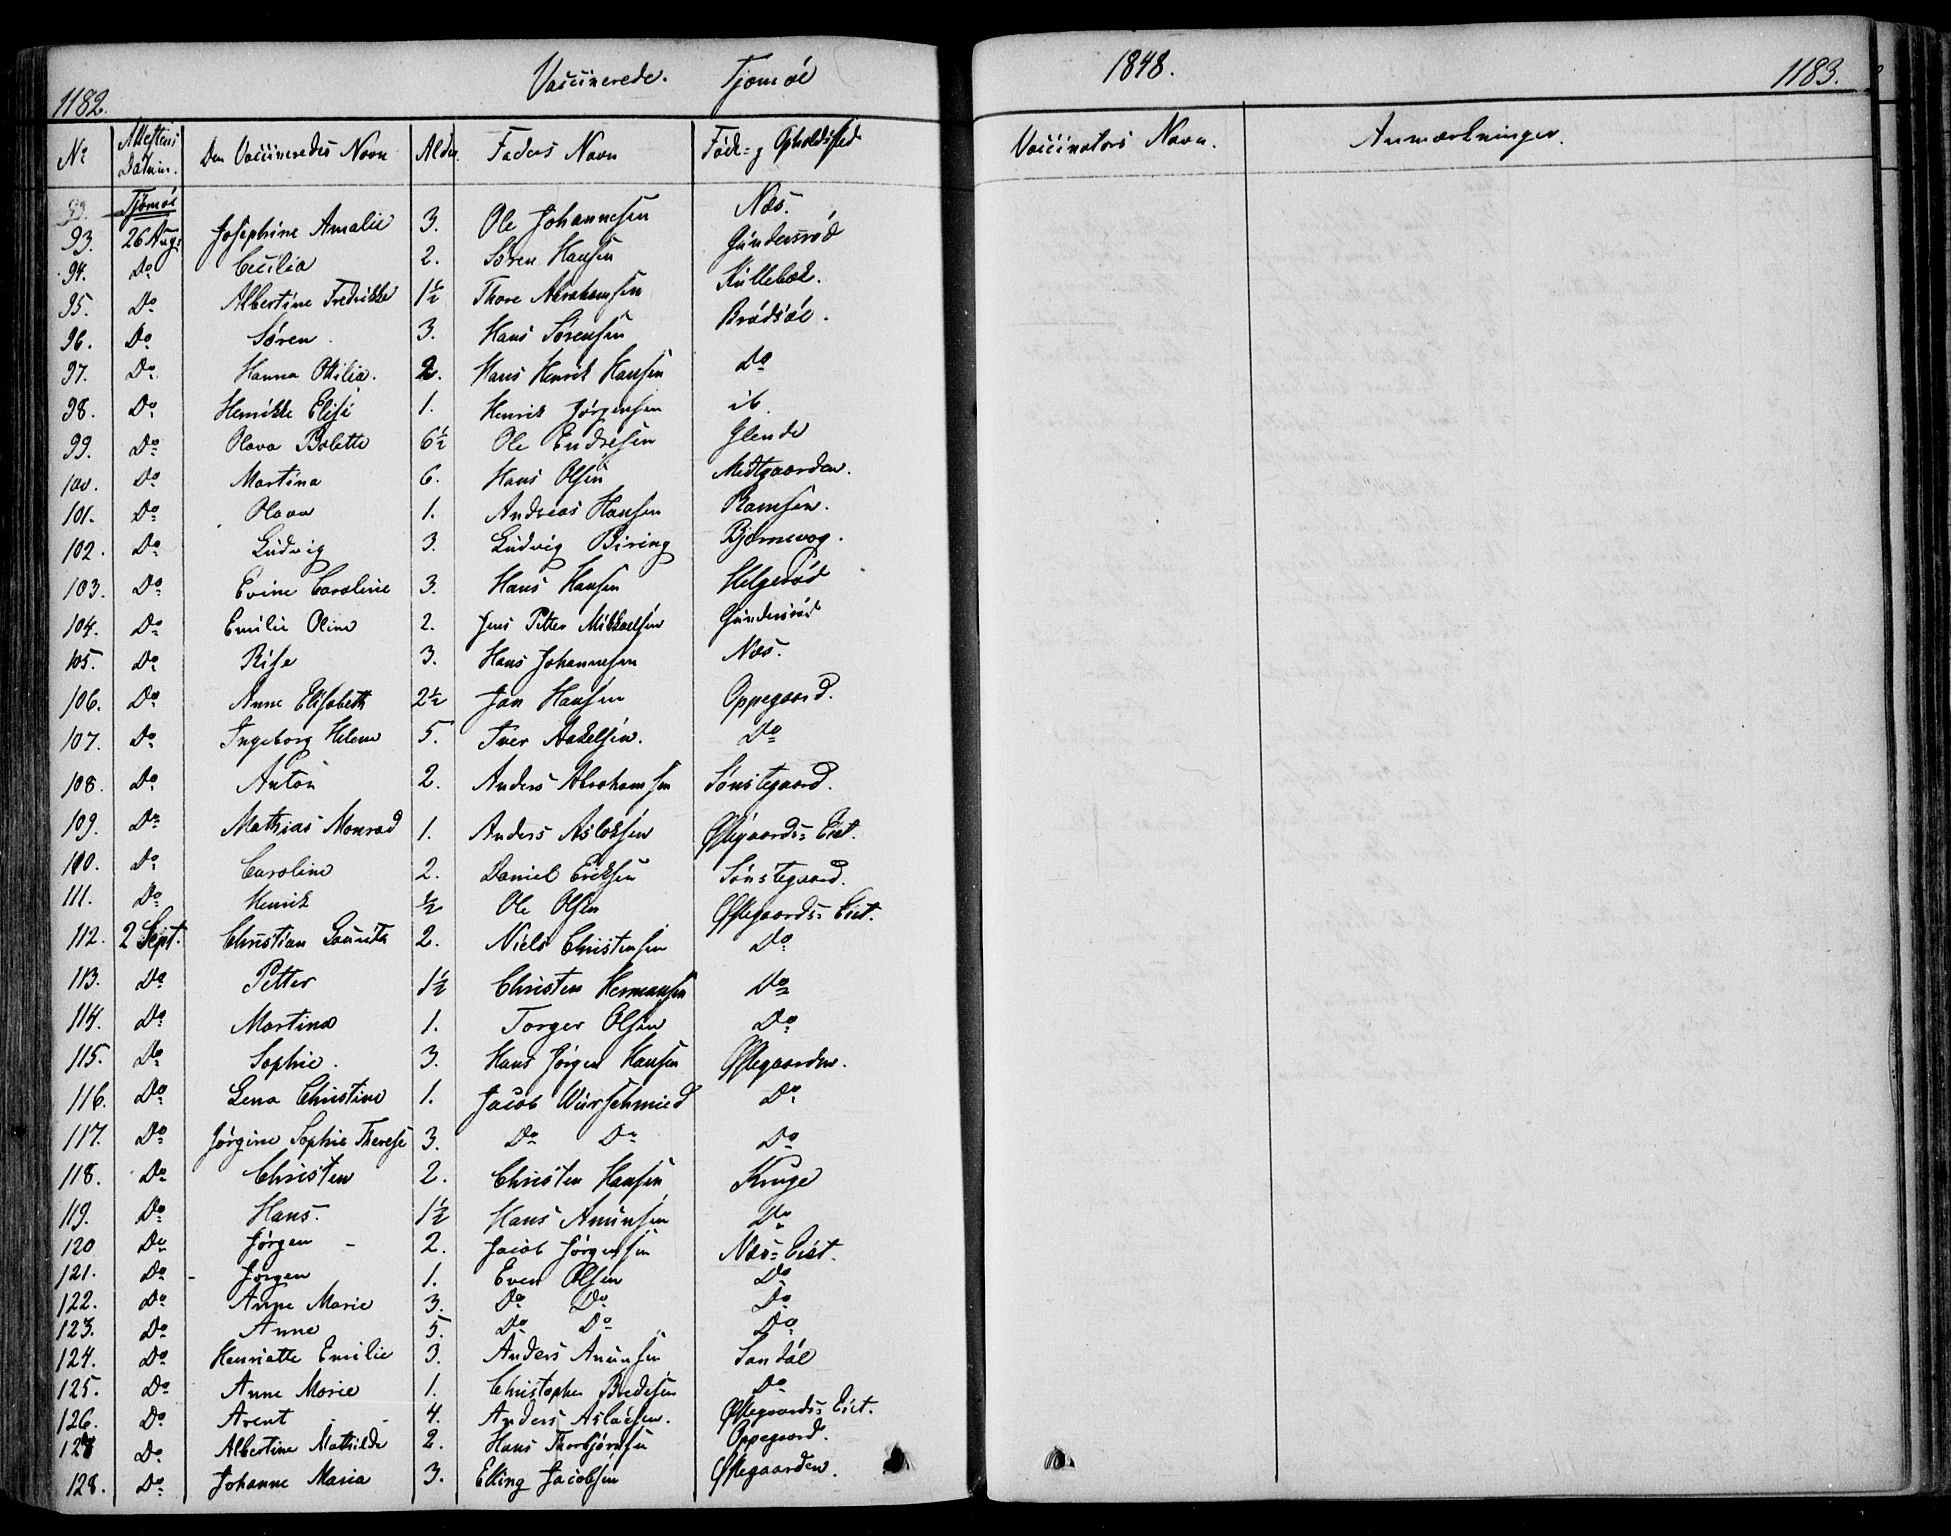 1182.
Vaccinerede. Tjømöe
1848.
1183.
Nº Attestens Datum. Den Vaccineredes Navn Alder. Faders Navn Föde- og Opholdsted
Vaccinators Navn. Anmærkninger.
93. Tjömöe
93. 26 Aug: Josephine Amalie 3. Ole Johannesen Næs.
94. Do Cecilia 2. Sören Hansen Gundersröd
95. Do Albertine Fredrikke 1½ Thore Abrahamsen Kullebæk.
96. Do Sören. 3. Hans Sörensen Brödsöe.
97. Do Hanna Otilia. 2. Hans Henrik Hansen Do
98. Do Henrikke Elise 1. Henrik Jörgensen ib.
99. Do Olava Bolette 6½ Ole Endresen Glende
100. Do Martina 6. Hans Olsen Medtgaarden.
101. Do Olava 1. Andreas Hansen Ramsen.
102. Do Ludvig 3. Ludvig Biring Bjørnevog.
103. Do Evine Caroline 3. Hans Hansen Helgeröd
104. Do Emilie Oline 2. Jens Petter Mikkaelsen Gundersröd
105. Do Rise 3. Hans Johannesen Næs.
106. Do Anne Elisabeth 2½ Jan Hansen Oppegaard.
107. Do Ingeborg Helene 5. Iver Axelsen. Do
108. Do Anton 2. Anders Abrahamsen Sönstegaard.
109. Do Mathias Monrad 1. Anders Aslaksen Östegaards-Eiet.
110. Do Caroline 2. Daniel Eriksen Sönstegaard.
111. Do Henrik ½ Ole Olsen Östegaards-Eiet.
112. 2 Sept. Christian Lauritz 2. Niels Christensen Do
113. Do Petter 1½ Christen Hermansen Do
114. Do Martina 1. Torger Olsen Do
115. Do Sophie. 3. Hans Jörgen Hansen Östegaarden.
116. Do Lena Christine 1. Jacob Würschmied Do
117. Do Jörgine Sophie Therese 3. Do Do Do
118. Do Christen 2. Christen Hansen Kruge
119. Do Hans. 1½ Hans Anunsen Do
120 Do Jörgen 2. Jacob Jörgensen Næs-Eiet.
121. Do Jörgen 1. Even Olsen Do
122. Do Anne Marie 3. Do Do Do
123. Do Anne 5. Do Do Do
124. Do Henriette Emilie 3. Anders Anunsen Sandöe
125. Do Anne Marie 1. Christopher Bredesen Do
126. Do Arent 4. Anders Aslacsen. Östegaards-Eiet.
127 Do Albertine Mathilde 2. Hans Thorbjörnsen Oppegaard.
128. Do Johanne Maria 3. Elling Jacobsen Östegaarden.